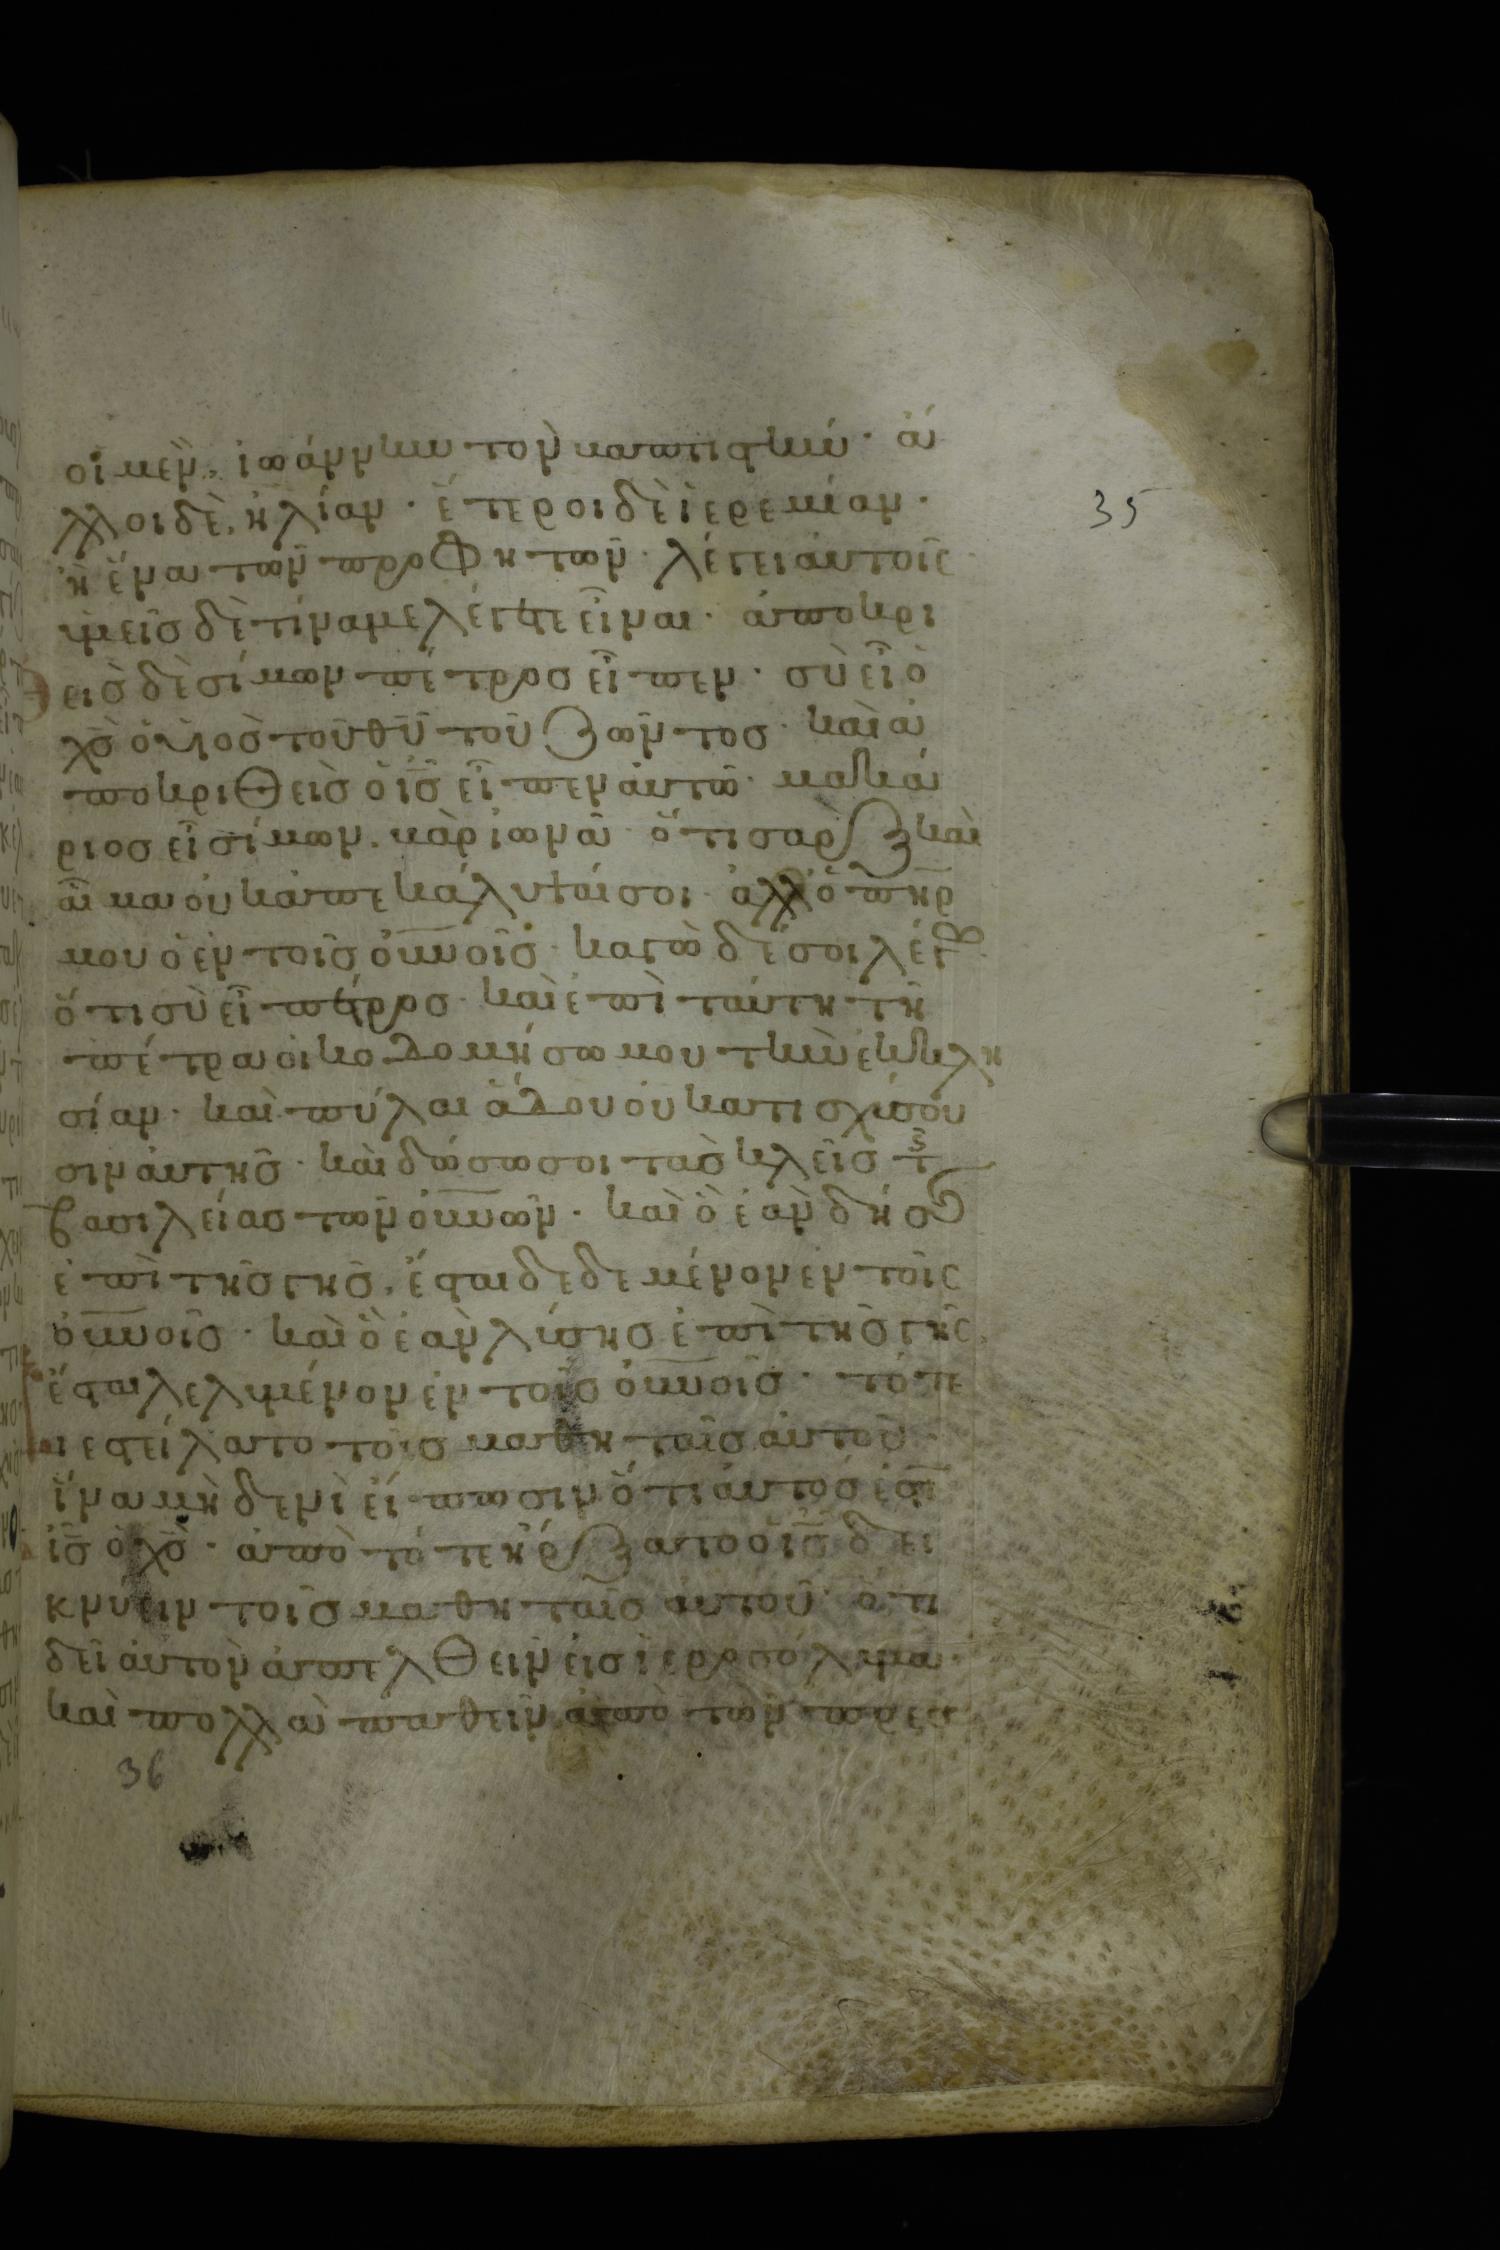 οἱ μὲν, ἰωάννην τὸν βαπτιστήν· ἄ
35
λλοι δὲ, ἠλίαν· ἕτεροι δὲ ἱερεμίαν·
ἢ ἕνα τῶν προφητῶν· λέγει αὐτοῖς
ὑμεῖς δὲ τίνα με λέγετε εἶναι· ἀποκρι
εις δὲ σίμων πέτρος εἶπεν· σὺ εἶ ὁ
χς ὁ υἱος τοῦ θυ τοῦ ζῶντος· καὶ ἀ
ποκριθεὶς ὁ ις εἶπεν αὐτῶ· μακά
ριος εἶ σίμων, βὰρ ἰωνᾶ· ὅτι σὰρξ καὶ
αἷμα οὐκ ἀπεκάλυψέ σοι· ἀλλ' ὁ πηρ
μου ὁ ἐν τοῖς οὐνοῖς· καγὼ δέ σοι λέγω
ὅτι σὺ εἶ πέτρος· καὶ ἐπὶ ταύτη τῆ
πέτρα οἰκοδομήσω μου τὴν ἐκκλη
σίαν· καὶ πύλαι ἅδου οὐ κατισχύσου
σιν αὐτῆς· καὶ δώσω σοι τὰς κλεῖς τῆς
βασιλείας τῶν οὐνῶν· καὶ ὃ ἐὰν δήσης
ἐπὶ τῆς γῆς, ἔσται δεδεμένον ἐν τοῖς
οὐνοῖς· καὶ ὃ ἐὰν λύσης ἐπὶ τῆς γῆς
ἔσται λελυμένον ἐν τοῖς οὐνοῖς· τότε
ιεστείλατο τοῖς μαθηταῖς αὐτοῦ·
ἵνα μὴ δενὶ εἴπωσιν ὅτι αὐτός ἐστι
ις ὁ χς· ἀπὸ τότε ἤρξατο ὁ ις δει
κνύειν τοῖς μαθηταῖς αὐτοῦ· ὅτι
δεῖ αὐτὸν ἀπελθεῖν εἰς ἱεροσόλυμα·
καὶ πολλὰ παθεῖν ἀπὸ τῶν πρεσ
36